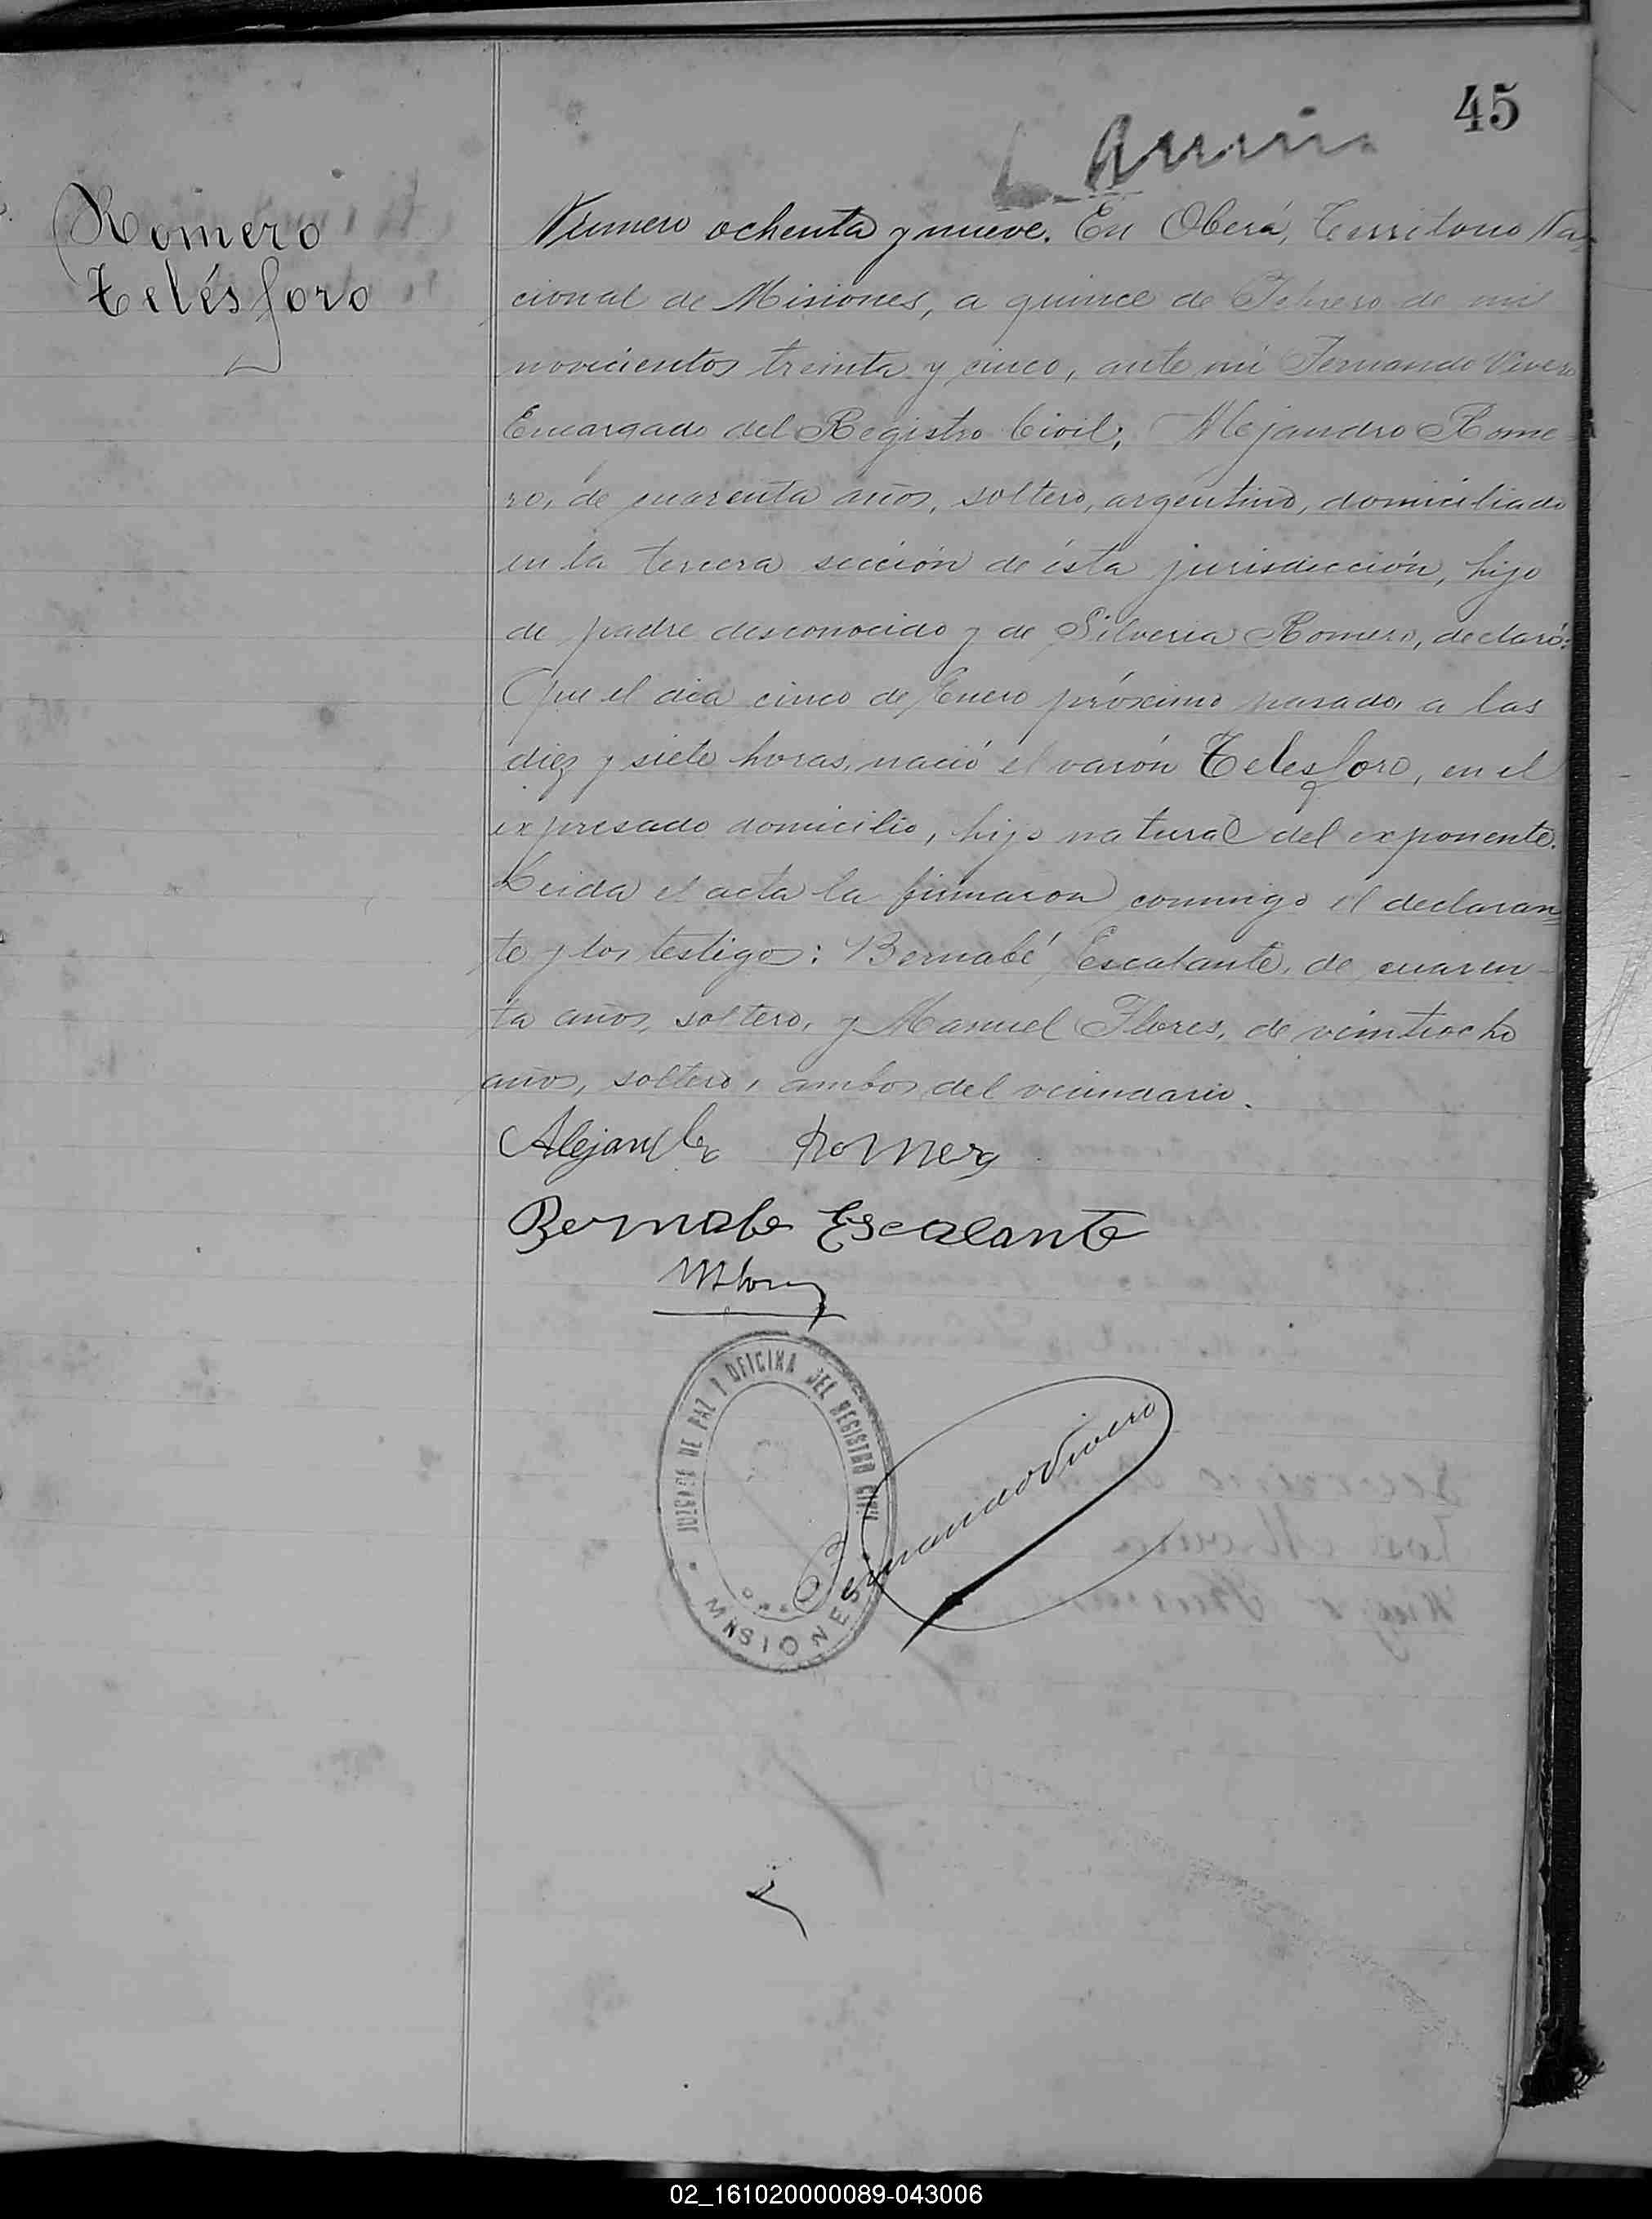 45
Romero
Telésforo
Número ochenta y nueve. En Oberá, Territorio Na-
cional de Misiones, a quince de Febrero de mil
novecientos treinta y cinco, ante mí Fernando Vivero
Encargado del Registro Civil; Alejandro Rome-
ro, de cuarenta años, soltero, argentino, domiciliado
en la tercera sección de ésta jurisdicción, hijo
de padre desconocido y de Silveria Romero, declaró:
Que el día cinco de Enero próximo pasado, a las
diez y siete horas, nació el varón Telesforo, en el
expresado domicilio, hijo natural del exponente.
Leida el acta la firmaron conmigo el declaran-
te y los testigos: Bernabé Escalante, de cuaren-
ta años, soltero, y Manuel Flores, de veintiocho
años, soltero, ambos del vecindario.
Alejandro Romero
Bernabe Escalante
JUZGADO DE PAZ Y OFICINA DEL REGISTRO CIVIL
MISIONES
Fernando Vivero
02_161020000089-043006